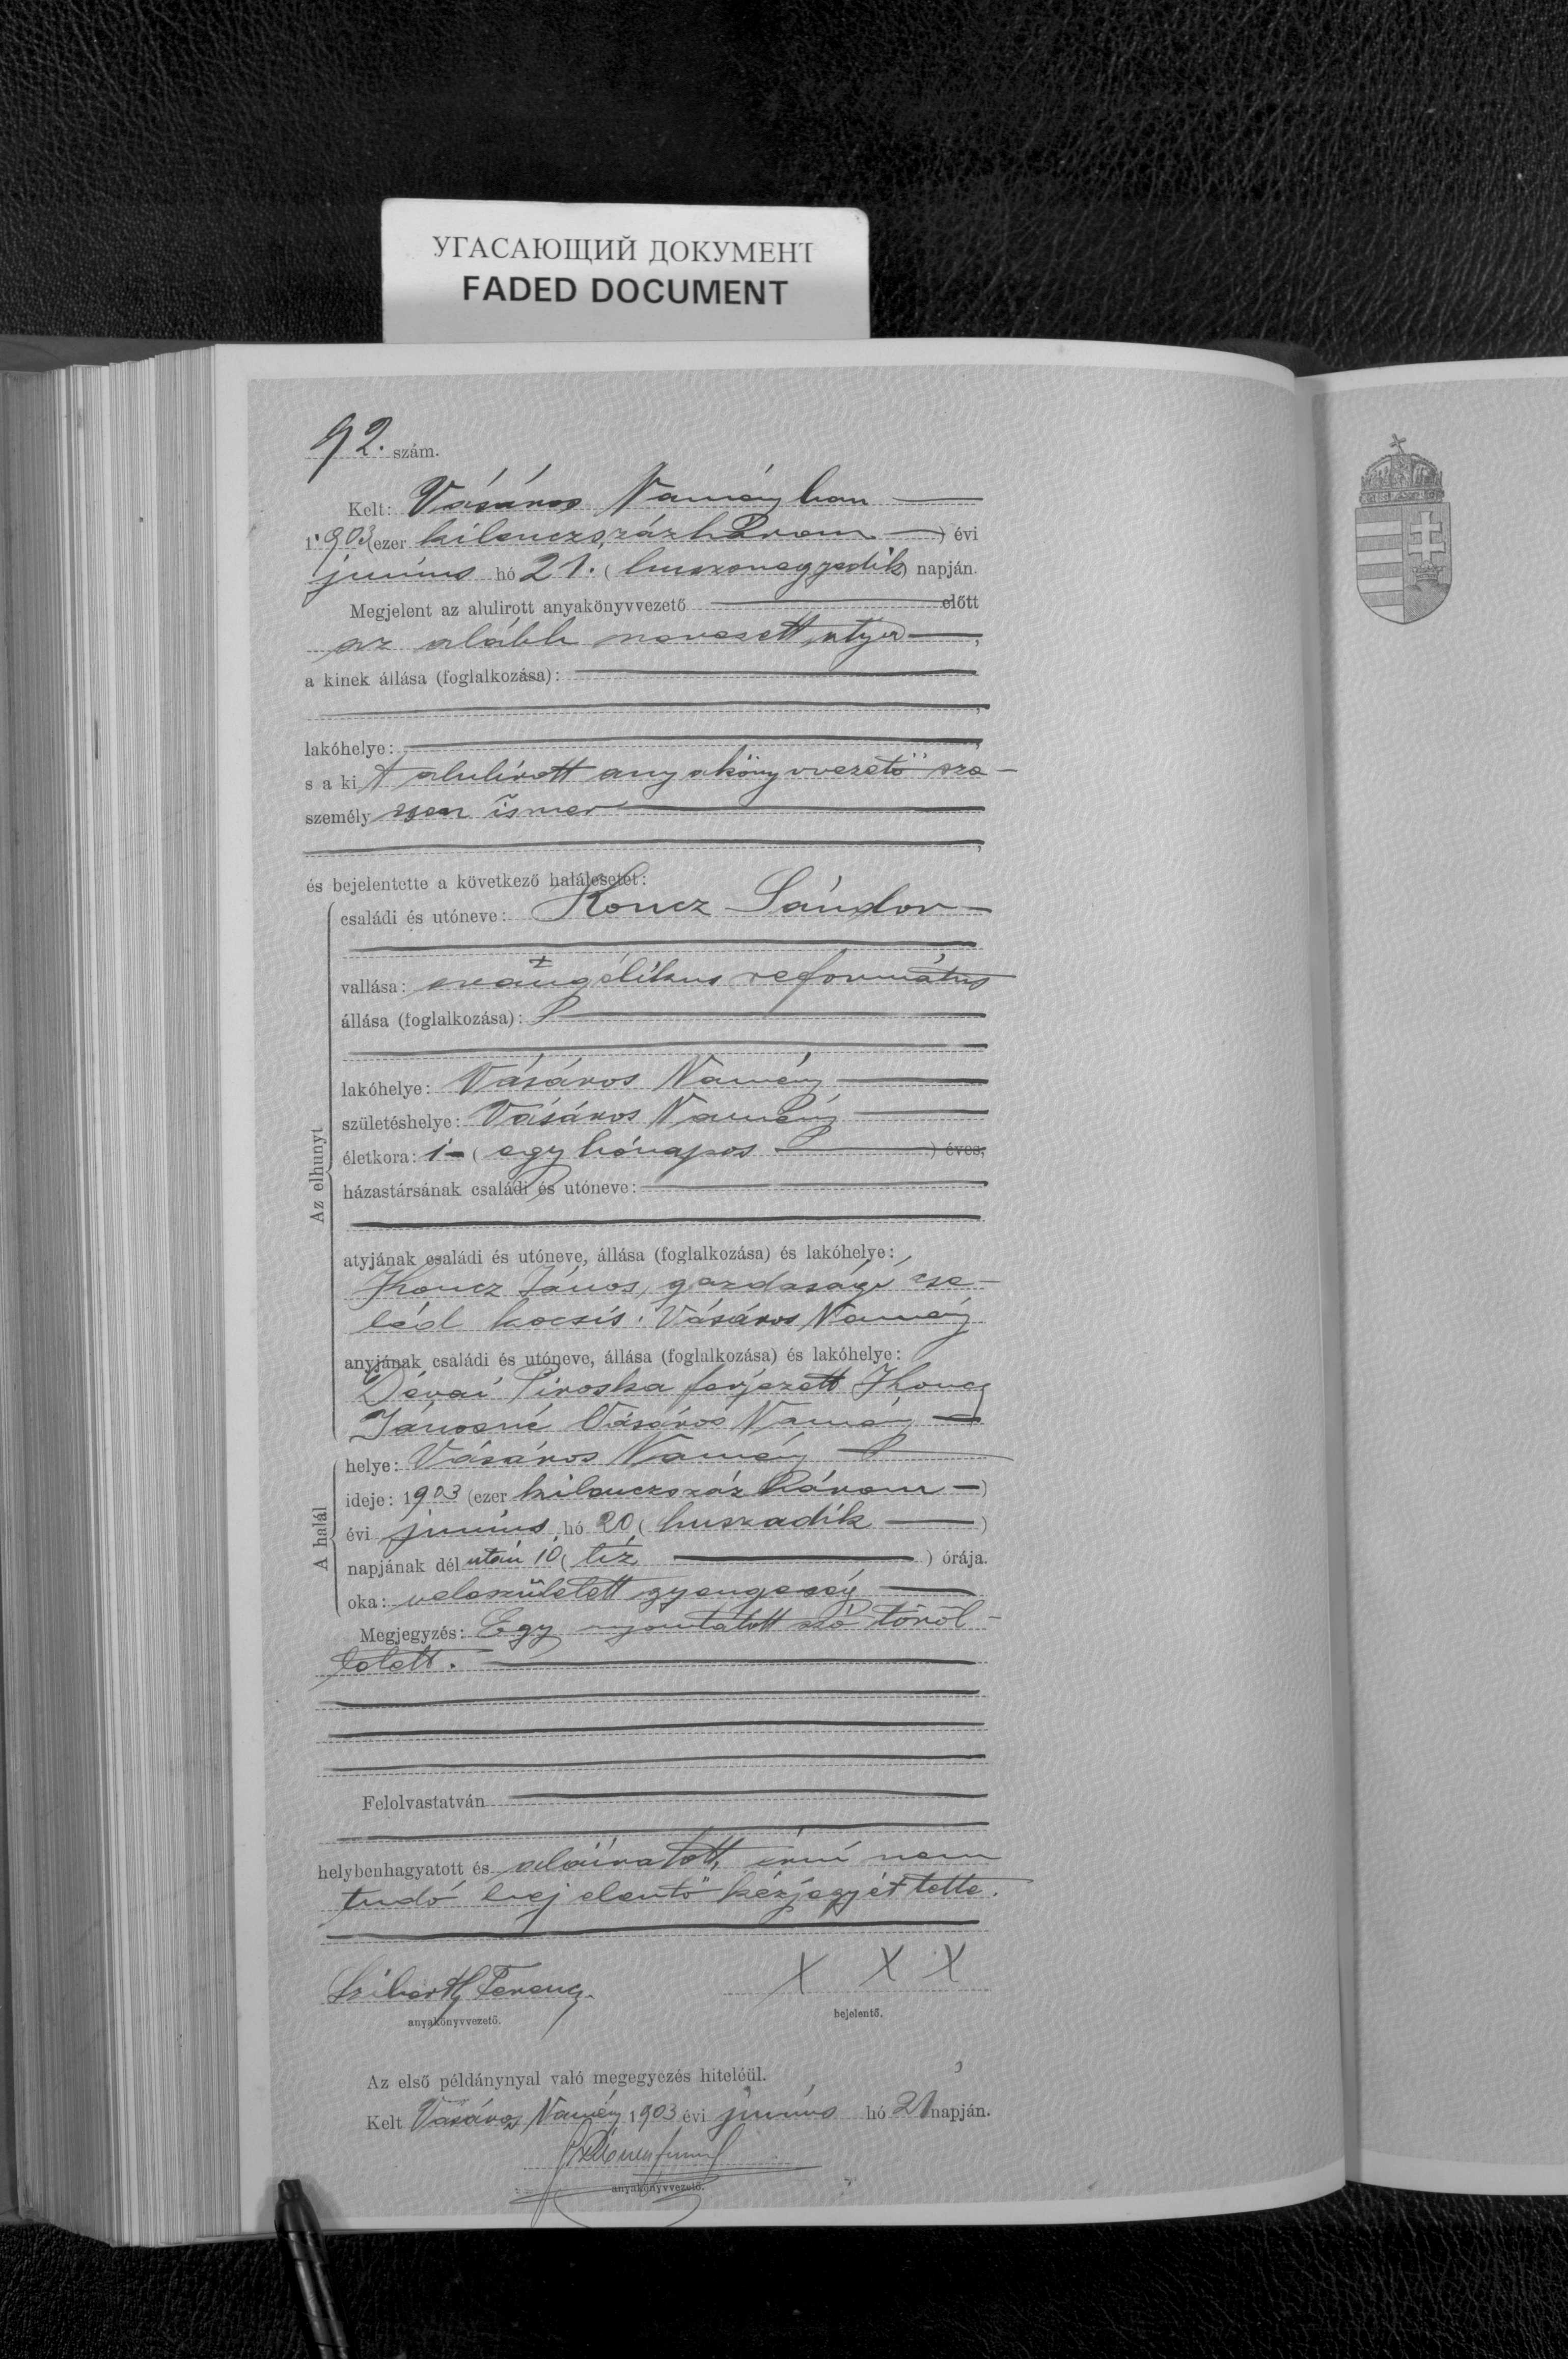 УГАСАЮЩИЙ ДОКУМЕНТ
FADED DOCUMENT
92. szám.
Kelt: Vásáros Naményban
1903 (ezer kilenczszázhárom ) évi
június hó 21. (huszonegyedik) napján.
Megjelent az alulirott anyakönyvvezető előtt
az alább nevezett atya,
a kinek állása (foglalkozása):
lakóhelye:
s a kit alulírott anyakönyvvezető sze-
személy sen ismer
és bejelentette a következő halálesetet:
családi és utóneve: Koncz Sándor
vallása: evángélikus református
állása (foglalkozása):
lakóhelye: Vásáros Namény
születéshelye: Vásáros Namény
életkora: 1 - (egy hónapos ) éves,
házastársának családi és utóneve:
Az elhunyt
atyjának családi és utóneve, állása (foglalkozása) és lakóhelye:
Koncz János, gazdasági cse-
léd kocsis. Vásáros Namény
anyjának családi és utóneve, állása (foglalkozása) és lakóhelye:
Dévai Piroska férjezett Koncz
Jánosné Vásáros Namény
helye: Vásáros Namény
ideje: 1903 (ezer kilenczszáz három )
évi június hó 20 (huszadik )
A halál
napjának dél után 10 (tíz ) órája.
oka: veleszületett gyengeség
Megjegyzés: Egy nyomtatott szó töröl-
tetett.
Felolvastatván
helybenhagyatott és aláíratott, írni nem
tudó bejelentő kézjegyét tette.
Ferencz
X X X
anyakönyvvezető.
bejelentő.
Az első példánynyal való megegyezés hiteléül.
Kelt Vásáros Namény 1903 évi június hó 21 napján.
anyakönyvvezető.